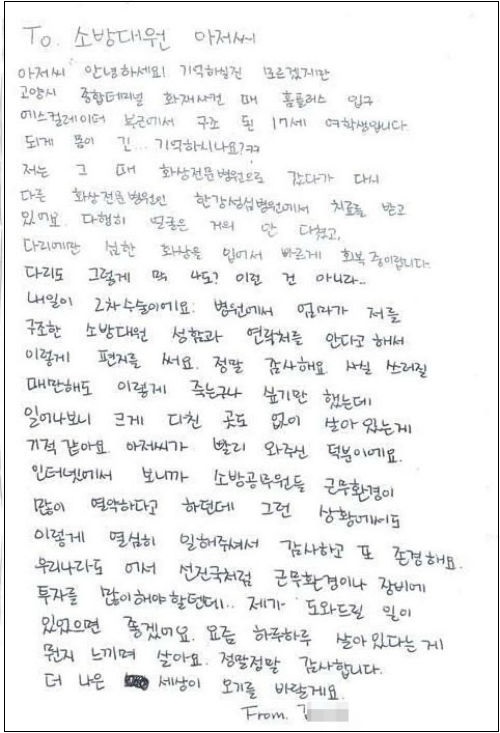 To. 소방대원 아저씨
아저씨 안녕하세요! 기억하실진 모르겠지만
고양시 종합터미널 화재사건 때 홈플러스 입구
에스컬레이터 부근에서 구조 된 17세 여학생입니다.
되게 몸이 긴... 기억하시나요?ㅋㅋ
저는 그 때 화상전문병원으로 갔다가 다시
다른 화상전문병원인 한강성심병원에서 치료를 받고
있어요. 다행히 얼굴은 거의 안 다쳤고,
다리에만 심한 화상을 입어서 빠르게 회복중이랍니다.
다리도 그렇게 막 이런 건 아니라..
내일이 2차수술이에요. 병원에서 엄마가 저를
구조한 소방대원 성함과 연락처를 안다고 해서
이렇게 편지를 써요. 정말 감사해요. 사실 쓰러질
때만해도 이렇게 죽는구나 싶기만 했는데
일어나보니 크게 다친 곳도 없이 살아 있는게
기적 같아요. 아저씨가 빨리 와주신 덕분이에요.
인터넷에서 보니까 소방공무원들 근무환경이
많이 열악하다고 하던데 그런 상황에서도
이렇게 열심히 일해주셔서 감사하고 또 존경해요.
우리나라도 어서 선진국처럼 근무환경이나 장비에
투자를 많이해야 할텐데.. 제가 도와드릴 일이
있었으면 좋겠어요. 요즘 하루하루 살아있다는 게
뭔지 느끼며 살아요. 정말정말 감사합니다.
더 나은 세상이 오기를 바랄게요.
From. 김